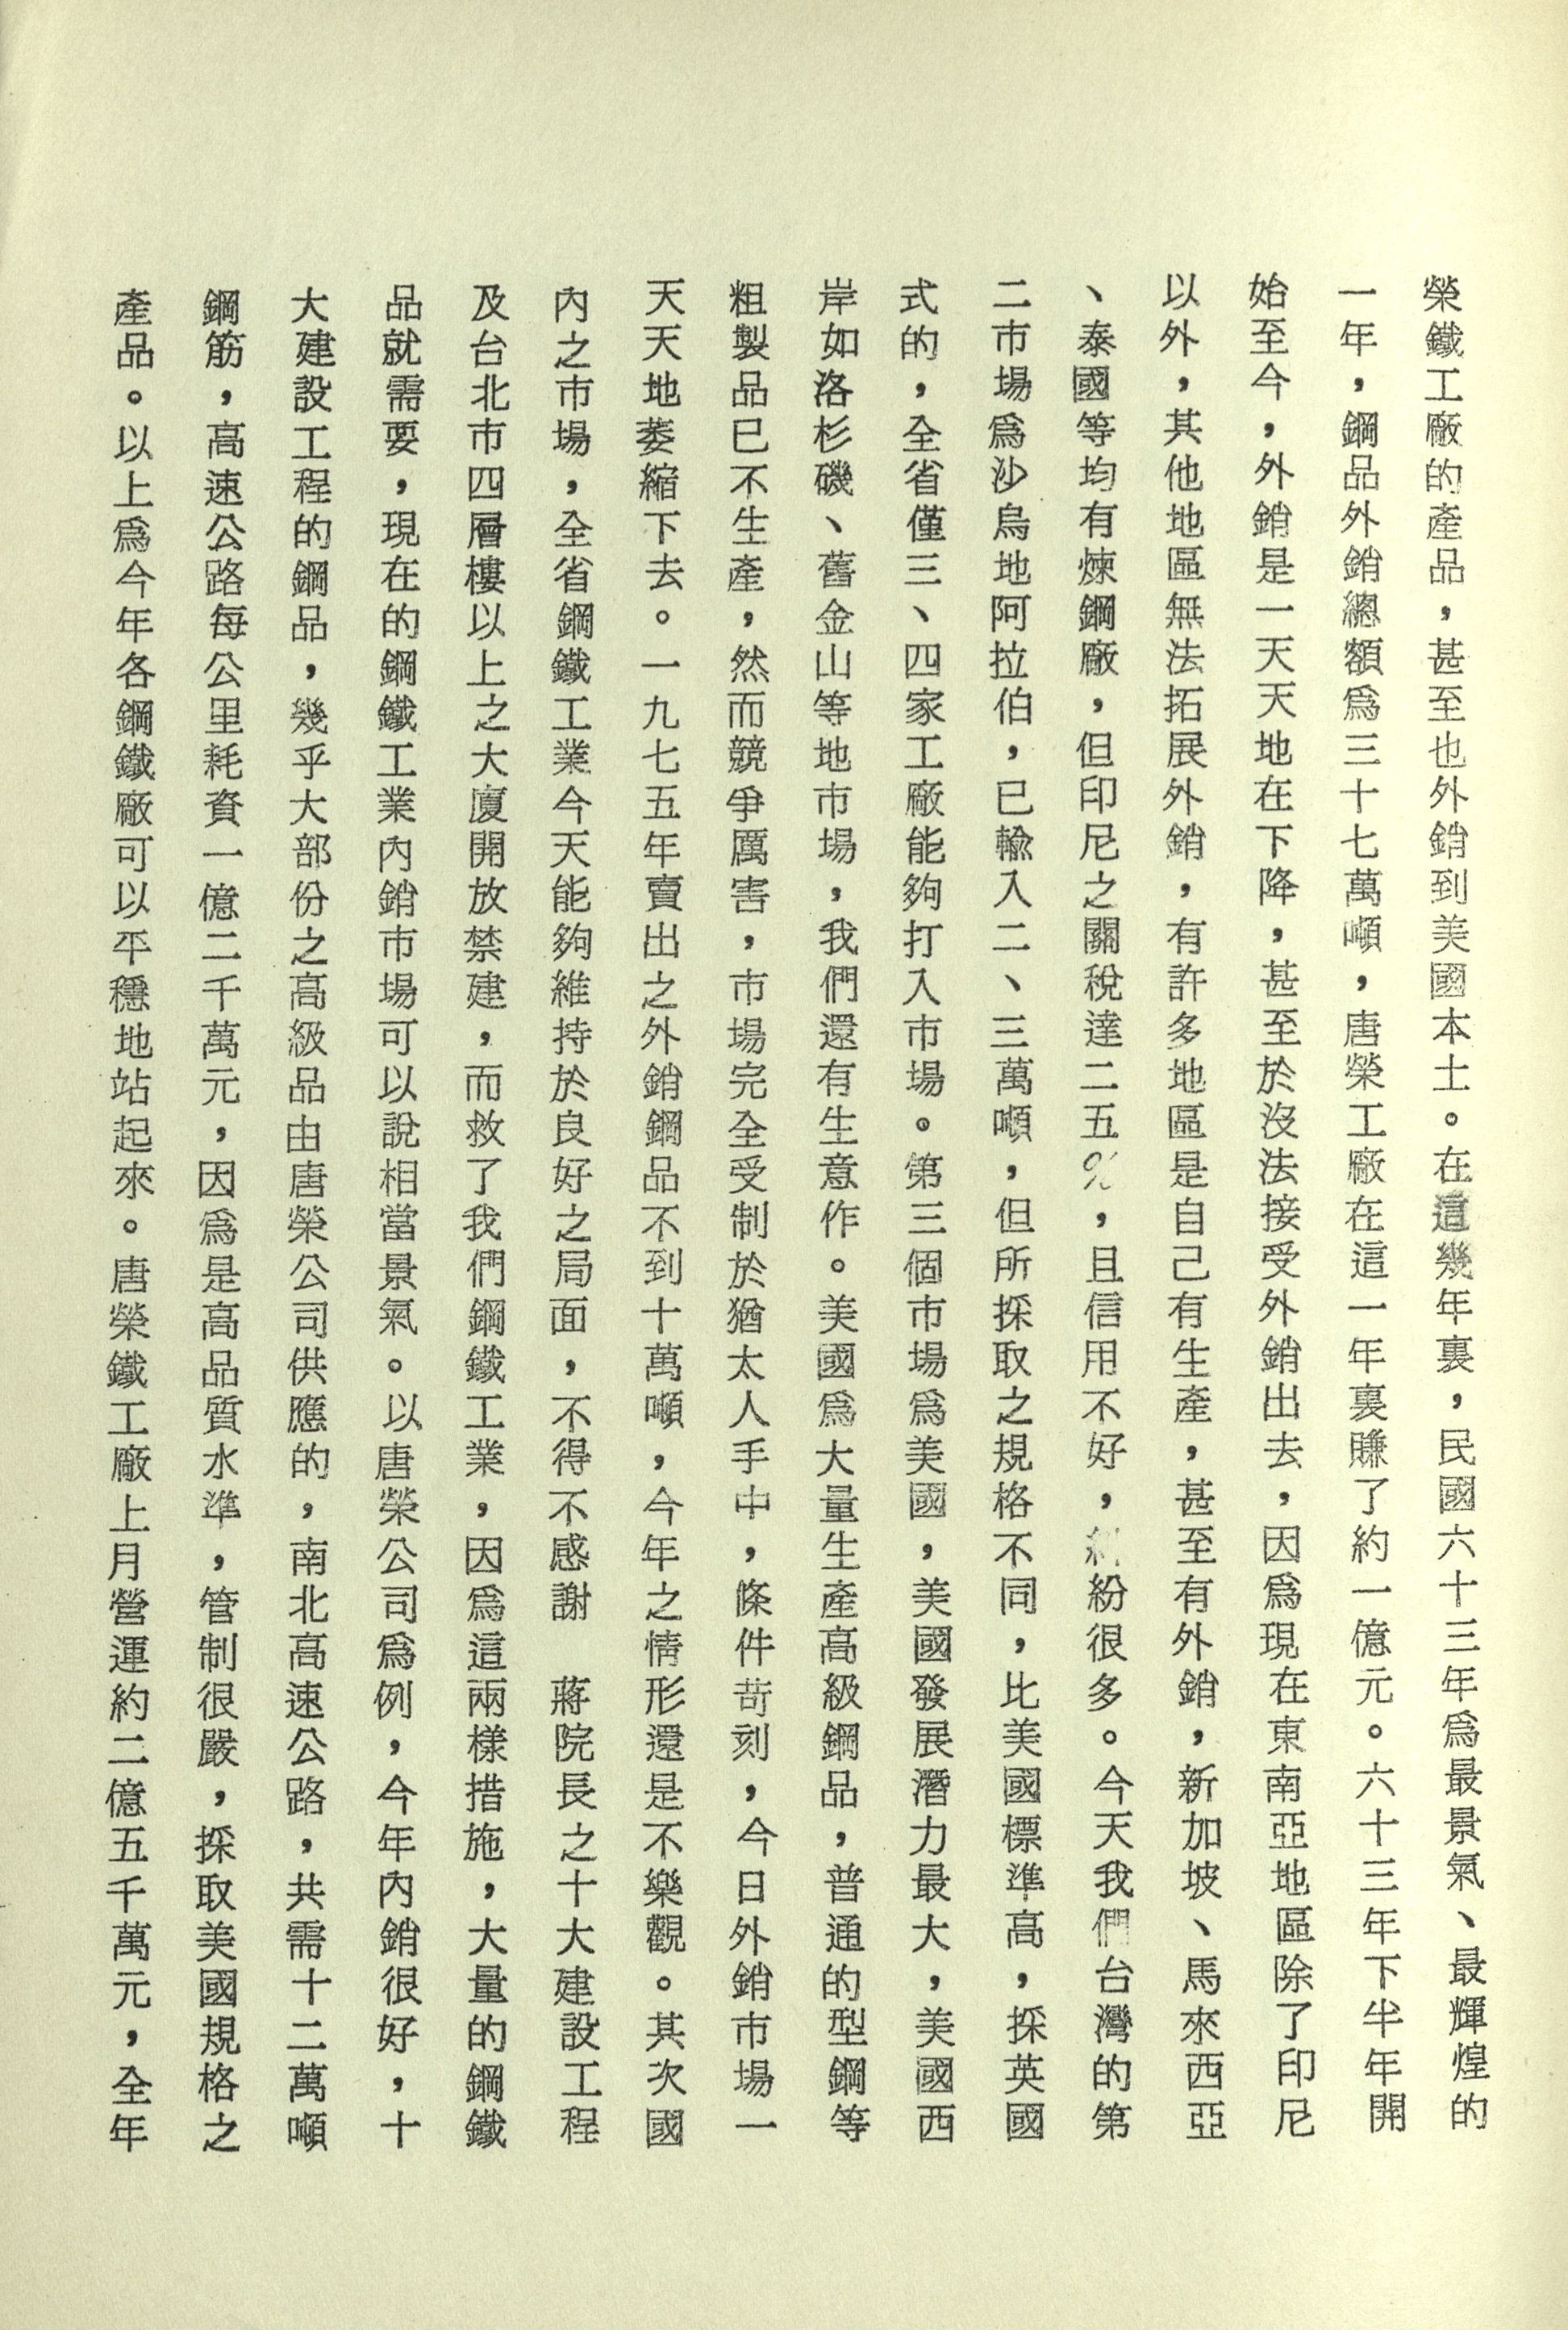 榮鐵工廠的產品，甚至也外銷到美國本土。在這幾年裏，民國六十三年爲最景氣、最輝煌的
一年，鋼品外銷總額爲三十七萬噸，唐榮工廠在這一年裏賺了約一億元。六十三年下半年開
始至今，外銷是一天天地在下降，甚至於沒法接受外銷出去，因爲現在東南亞地區除了印尼
以外，其他地區無法拓展外銷，有許多地區是自己有生產，甚至有外銷，新加坡、馬來西亞
、泰國等均有煉鋼廠，但印尼之關稅達二五％，且信用不好，糾紛很多。今天我們台灣的第
二市場爲沙烏地阿拉伯，已輸入二、三萬噸，但所採取之規格不同，比美國標準高，採英國
式的，全省僅三、四家工廠能夠打入市場。第三個市場爲美國，美國發展潛力最大，美國西
岸如洛杉磯、舊金山等地市場，我們還有生意作。美國爲大量生產高級鋼品，普通的型鋼等
粗製品已不生產，然而競爭厲害，市場完全受制於猶太人手中，條件苛刻，今日外銷市場一
天天地萎縮下去。一九七五年賣出之外銷鋼品不到十萬噸，今年之情形還是不樂觀。其次國
內之市場，全省鋼鐵工業今天能夠維持於良好之局面，不得不感謝　蔣院長之十大建設工程
及台北市四層樓以上之大廈開放禁建，而救了我們鋼鐵工業，因爲這兩樣措施，大量的鋼鐵
品就需要，現在的鋼鐵工業內銷市場可以說相當景氣。以唐榮公司爲例，今年內銷很好，十
大建設工程的鋼品，幾乎大部份之高級品由唐榮公司供應的，南北高速公路，共需十二萬噸
鋼筋，高速公路每公里耗資一億二千萬元，因爲是高品質水準，管制很嚴，採取美國規格之
產品。以上爲今年各鋼鐵廠可以平穩地站起來。唐榮鐵工廠上月營運約二億五千萬元，全年